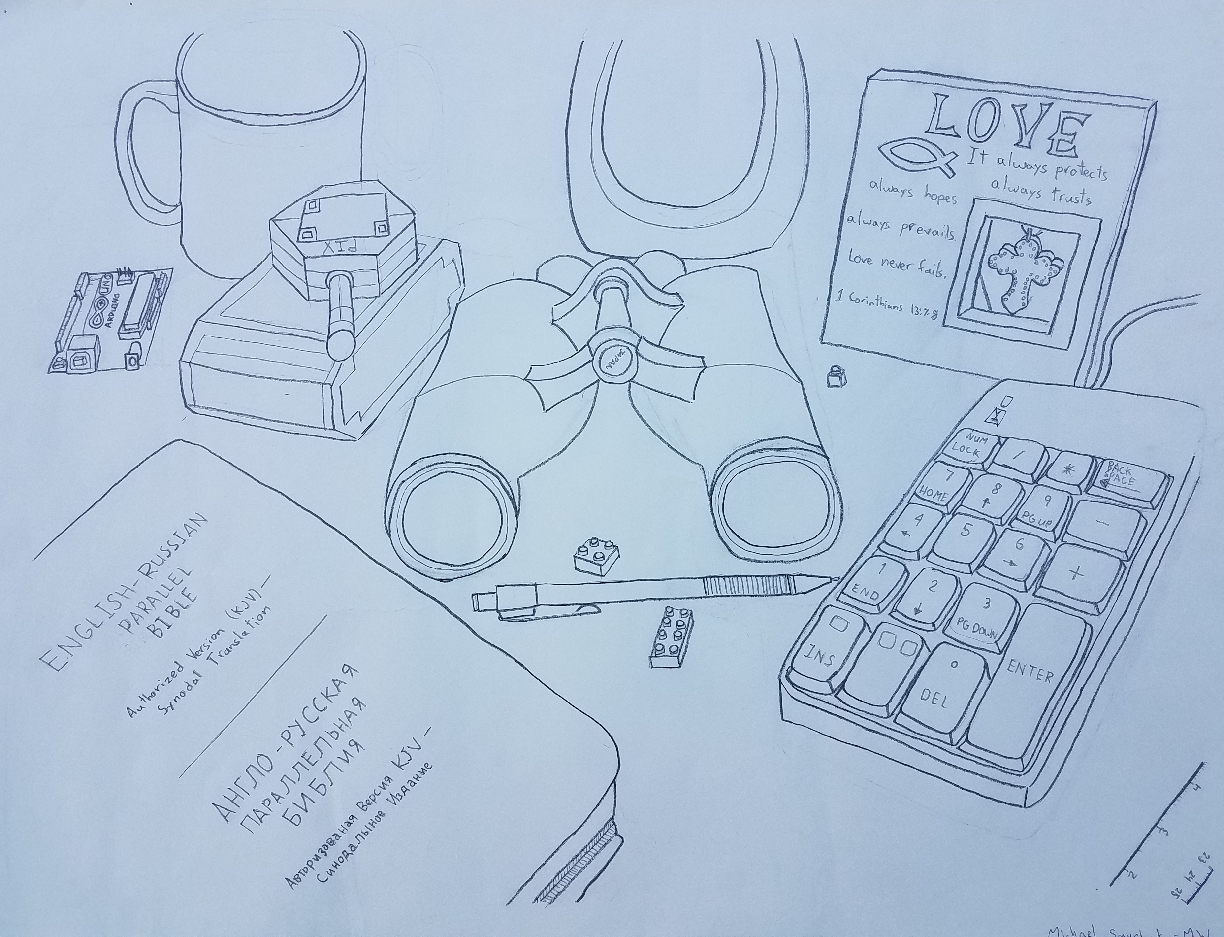 LOVE
It always protects
always trusts
always hopes
always prevails
love never fails.
1 Corinthians 13:7-8
PIX
UNO
ARDUINO
NUM
LOCK
/
*
BACK
SPACE
7
HOME
8
9
PG UP
-
4
5
6
+
1
END
2
3
PG DOWN
ENTER
INS
DEL
ENGLISH-RUSSIAN
PARALLEL
BIBLE
Authorized Version (KJV) –
Synodal Translation
АНГЛО-РУССКАЯ
ПАРАЛЛЕЛЬНАЯ
БИБЛИЯ
Авторизованая Версия KJV –
Синодалыное Издание
4
3
2
23
24
25
Michael